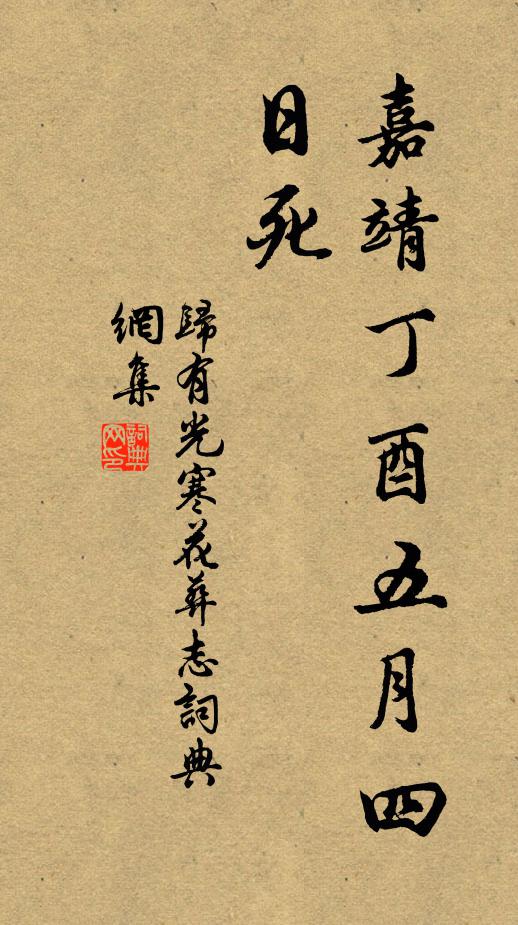 嘉靖丁酉五月四
日死
歸有光寒花葬志詞典
網集
詞典網印